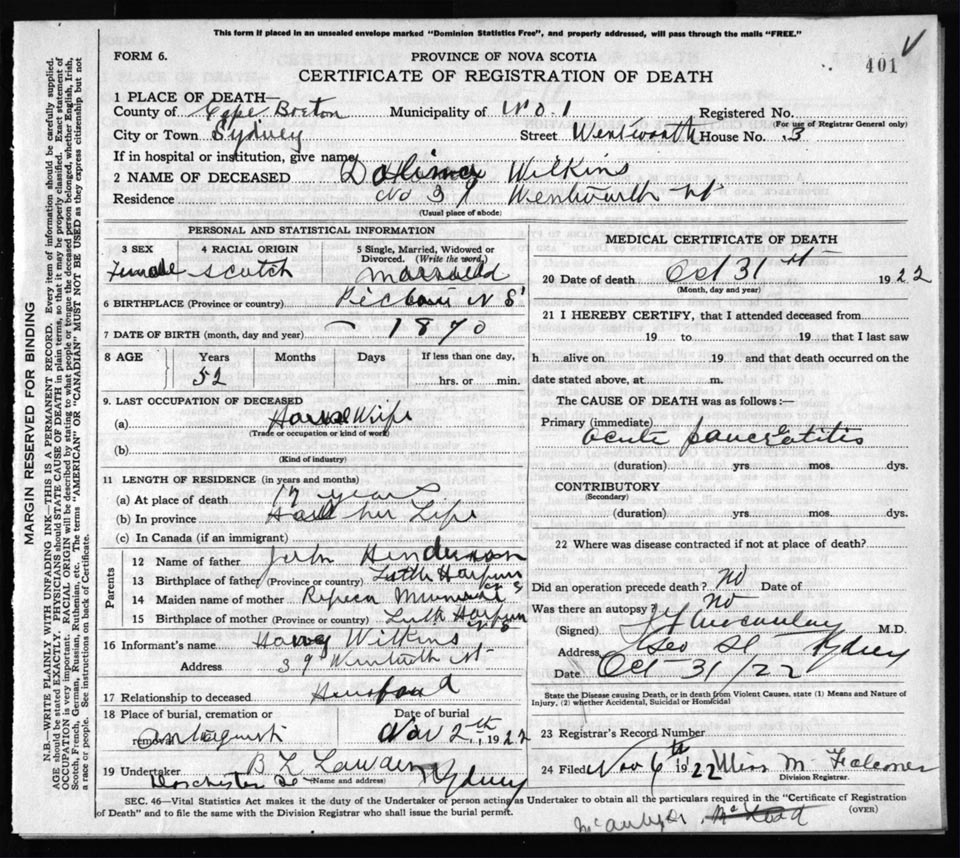 This form if placed in an unsealed envelope marked "Dominion Statistics Free", and properly addressed, will pass through the mails "FREE."
FORM 6.
PROVINCE OF NOVA SCOTIA
401
CERTIFICATE OF REGISTRATION OF DEATH
1 PLACE OF DEATH—
County of Cape Breton Municipality of No. 1 Registered No.
(For use of Registrar General only)
City or Town Sydney Street Wentworth House No. 3
If in hospital or institution, give name
2 NAME OF DECEASED Wilkins
Residence No 39 Wentworth St
(Usual place of abode)
PERSONAL AND STATISTICAL INFORMATION
3 SEX 4 RACIAL ORIGIN 5 Single, Married, Widowed or Divorced. (Write the word.)
Female Scotch Married
6 BIRTHPLACE (Province or country) N S
7 DATE OF BIRTH (month, day and year) — 1870
8 AGE Years Months Days If less than one day,
52 hrs. or min.
9. LAST OCCUPATION OF DECEASED
(a) House Wife
(Trade or occupation or kind of work)
(b)
(Kind of industry)
11 LENGTH OF RESIDENCE (in years and months)
(a) At place of death 17 years
(b) In province her Life
(c) In Canada (if an immigrant)
Parents
12 Name of father John Henderson
13 Birthplace of father (Province or country)
14 Maiden name of mother
15 Birthplace of mother (Province or country)
16 Informant's name Harvey Wilkins
Address 39 Wentworth St
17 Relationship to deceased Husband
18 Place of burial, cremation or removal Date of burial
Nov 2th 1922
19 Undertaker Sydney
Dorchester (Name and address)
MEDICAL CERTIFICATE OF DEATH
20 Date of death Oct 31st 1922
(Month, day and year)
21 I HEREBY CERTIFY, that I attended deceased from
19 to 19 that I last saw
h alive on 19 and that death occurred on the
date stated above, at m.
The CAUSE OF DEATH was as follows:—
Primary (immediate)
acute pancreatitis
(duration) yrs. mos. dys.
CONTRIBUTORY
(Secondary)
(duration) yrs. mos. dys.
22 Where was disease contracted if not at place of death?
Did an operation precede death? No Date of
Was there an autopsy? No
(Signed) M.D.
Address Geo St Sydney
Date Oct 31/22
State the Disease causing Death, or in death from Violent Causes, state (1) Means and Nature of Injury, (2) whether Accidental, Suicidal or Homicidal
23 Registrar's Record Number
24 Filed Nov 6th 1922 Miss M Falconer
Division Registrar.
SEC. 46—Vital Statistics Act makes it the duty of the Undertaker or person acting as Undertaker to obtain all the particulars required in the "Certificate of Registration of Death" and to file the same with the Division Registrar who shall issue the burial permit.
(OVER)
MARGIN RESERVED FOR BINDING
N.B.—WRITE PLAINLY WITH UNFADING INK—THIS IS A PERMANENT RECORD. Every item of information should be carefully supplied.
AGE should be stated EXACTLY. PHYSICIANS should STATE CAUSE OF DEATH in plain terms, so that it may be properly classified. Exact statement of
OCCUPATION is very important. RACIAL ORIGIN will be described by stating to what people or tongue the deceased person belonged, whether English, Irish,
Scotch, French, German, Russian, Ruthenian, etc. The terms "AMERICAN" OR "CANADIAN" MUST NOT BE USED as they express citizenship but not
a race or people. See instructions on back of Certificate.